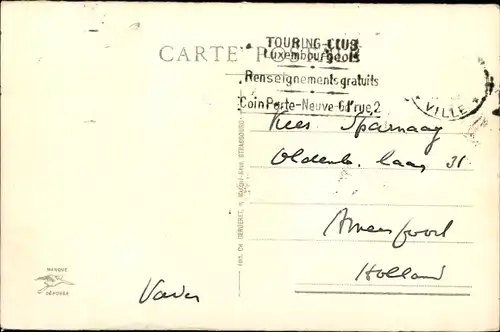 CARTE POSTALE
TOURING-CLUB
Luxembourgeois
Renseignements gratuits
Coin Porte-Neuve-Gd'rue, 2
VILLE
Kees Sparnaay
Oldenb. laan 31
Amersfoort
Holland
Vader
MARQUE
DÉPOSÉE